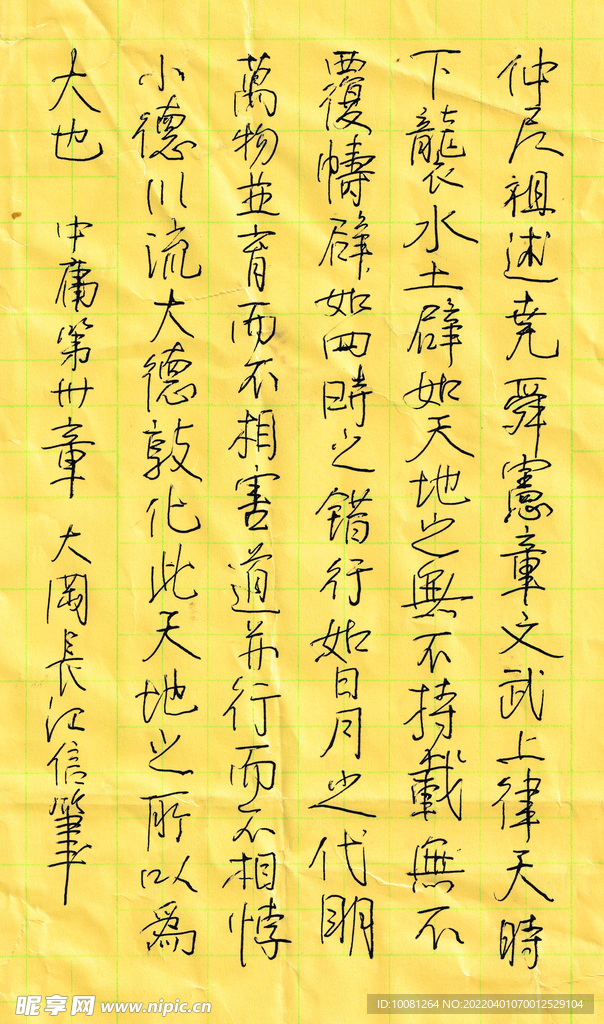 仲尼祖述堯舜憲章文武上律天時
下襲水土辟如天地之無不持載無不
覆幬辟如四時之錯行如日月之代明
萬物並育而不相害道并行而不相悖
小德川流大德敦化此天地之所以為
大也 中庸第卅章 大國長江信筆
昵享网 www.nipic.cn
ID:10081264 NO:20220401070012529104